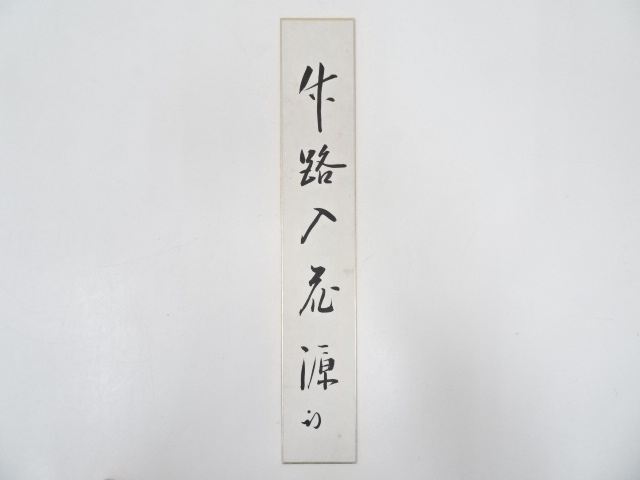 路入花源